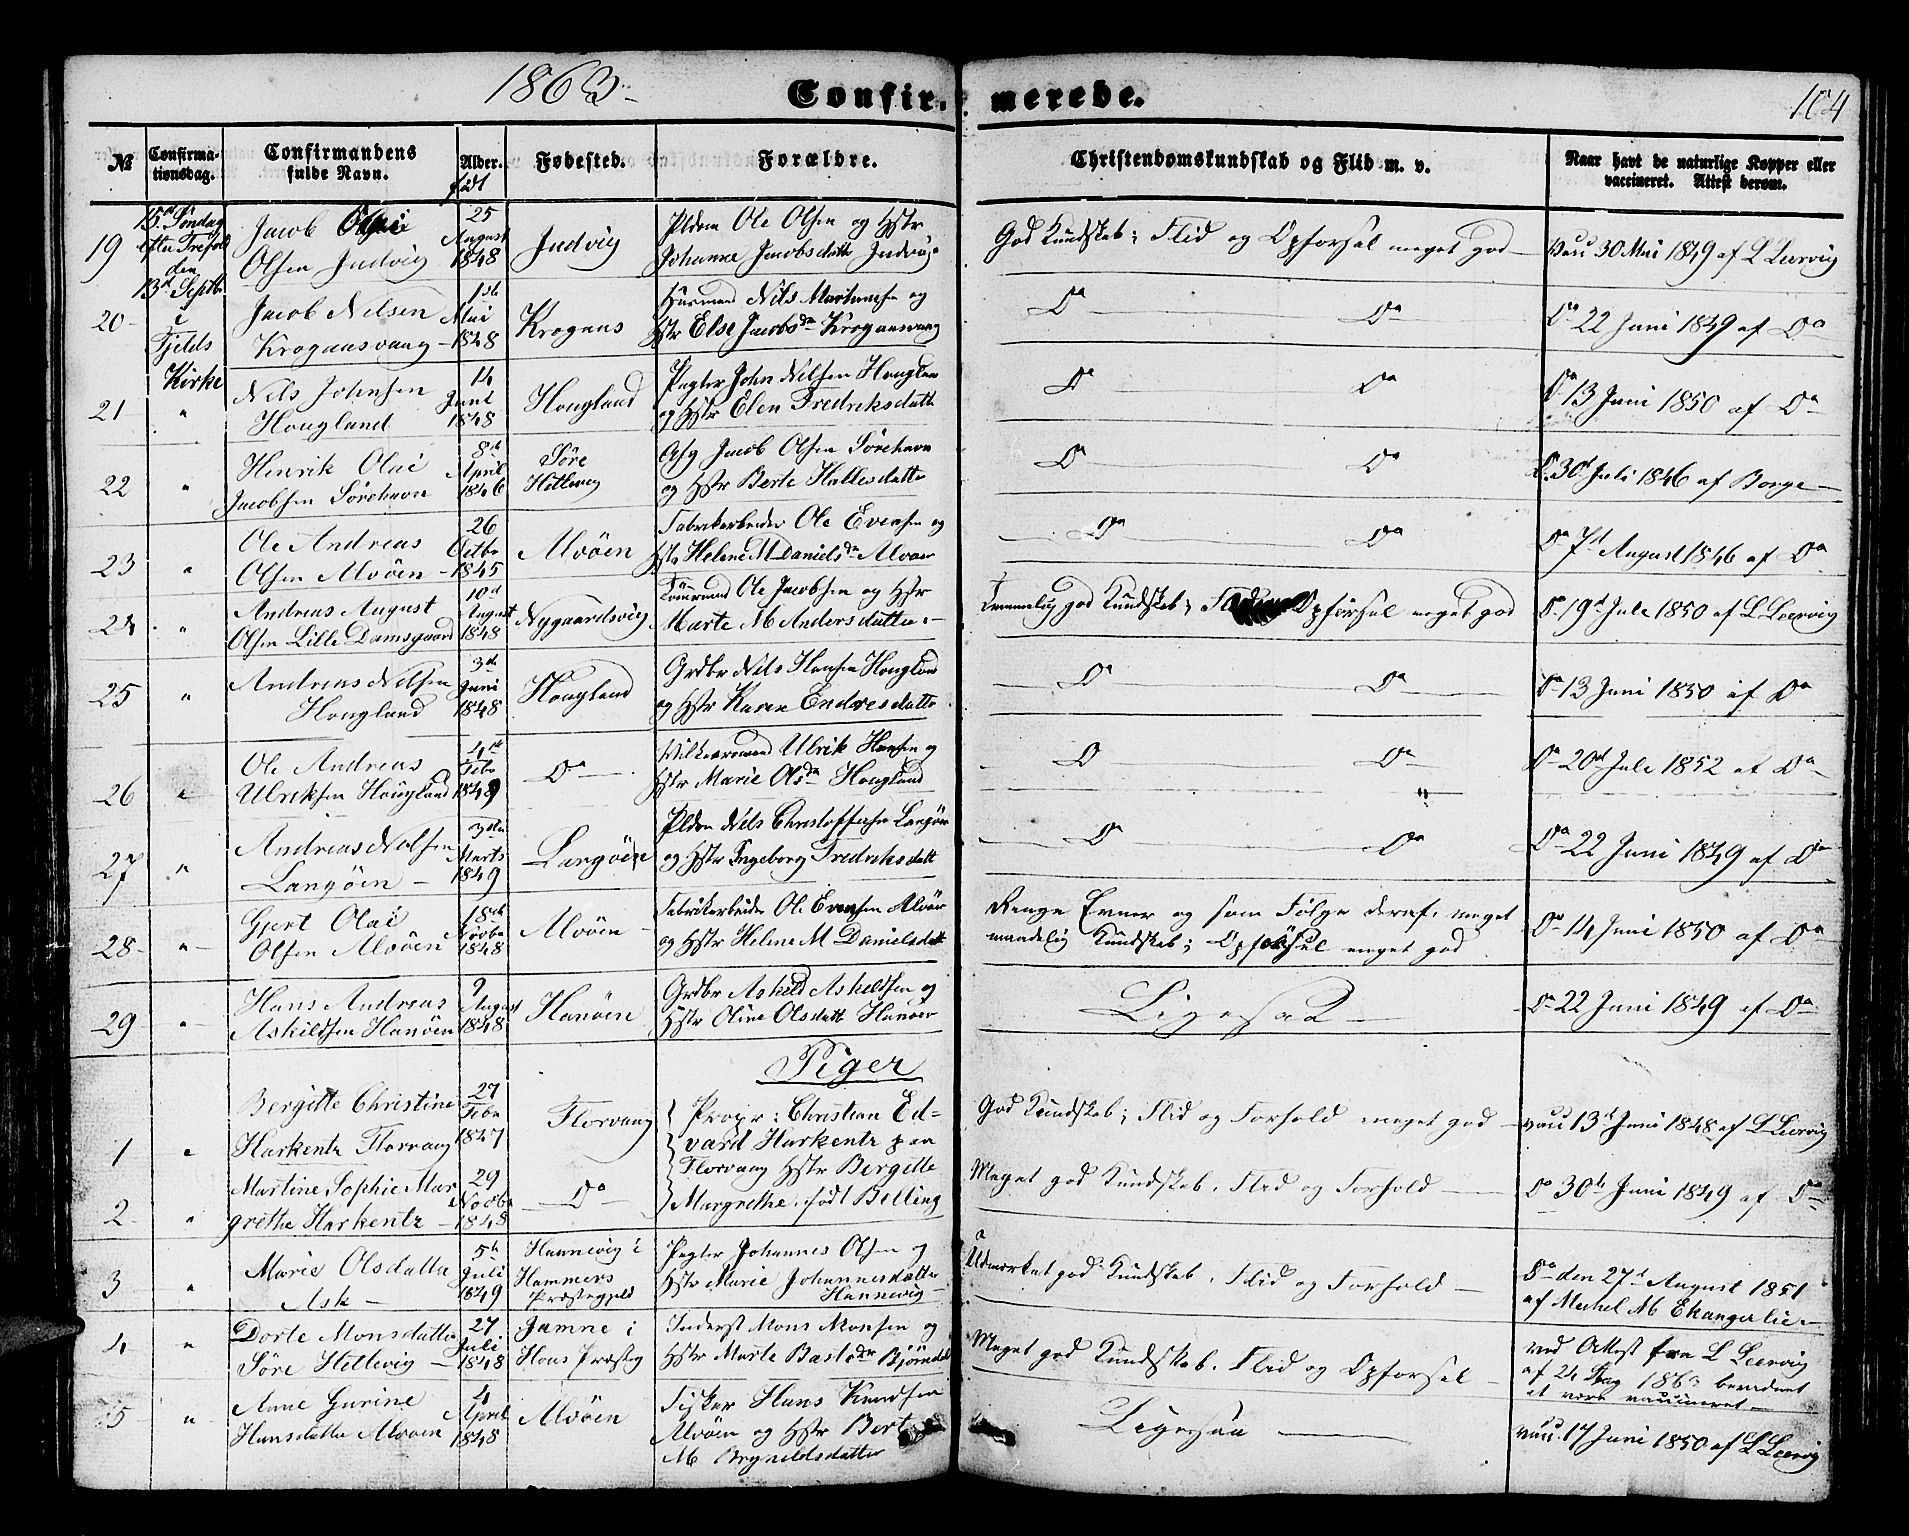 1863
Confir- merede.
104
№
Confirma-
tionsdag.
Confirmandens
fulde Navn.
Alder.
født
Fødested.
Forældre.
Christendomskundskab og Flid m. v.
Naar havt de naturlige Kopper eller
vaccineret. Attest herom.
15d Søndag
efter Trefold
den
13d Septbr
i
Fjelds
Kirke
19
Jacob
Olsen Judvig
25
August
1848
Judvig
Pldm Ole Olsen og Hstr
Johanne Jacobsdatt Judvig
God Kundskab; Flid og Opførsel meget god
vacc 30 Mai 1849 af L Leervig
20
Jacob Nilsen
Krogaasvaag
1st
Mai
1848
Krogaas
Husmand Nils Martinusen og
Hstr Else Jacobsdr Krogaasvaag
Do Do
Do 22 Juni 1849 af Do
21 "
Nils Johnsen
Hougland
14
Juni
1848
Hougland
Pagter John Nilsen Houglan
og Hstr Elen Fredriksdatte
Do Do
Do 13 Juni 1850 af Do
22 "
Henrik Olai
Jacobsen Sørehavn
8de
April
1846
Søre
Hillevig
Jacob Olsen Sørehavn
og Hstr Berte Hallesdatte
Do Do
Do 30d Juli 1846 af Borge
23 "
Ole Andreas
Olsen Alvøen
26
Octbr
1845
Alvøen
Fabrikarbeider Ole Evensen og
Hstr Helene M Danielsdr Alvøen
Do Do
Do 7d August 1846 af Do
24 "
Andreas August
Olsen Lille Damsgaard
10d
August
1848
Nygaardsvig
Tømmermand Ole Jacobsen og Hstr
Marte M Andersdatter
Temmelig god Kundskab; Opførsel meget god
Do 19d Juli 1850 af L Leervig
25 "
Andreas Nilsen
Hougland
3de
Juni
1848
Hougland
Grdbr Nils Hansen Hougland
og Hstr Karen Endresdatte
Do Do
Do 13 Juni 1850 af Do
26 "
Ole Andreas
Ulriksen Hougland
Febr
1849
Do
Vilkaarsmand Ulrik Hansen og
Hstr Marie Olsdr Hougland
Do Do
"
Do 20d Juli 1852 af Do
27 "
Andreas Nilsen
Langøen
3die
Marts
1849
Langøen
Pldm Nils Christoffersen Langøen
og Hstr Ingeborg Fredriksdatt
Do Do
Do 22 Juni 1849 af Do
28 "
Gjert Olai
Olsen Alvøen
18de
Novbr
1848
Alvøen
Fabrikarbeider Ole Evensen Alvøen
og Hstr Helene M Danielsdatt
Ringe Evner og som Følge deraf meget
maadelig Kundskab; Opførsel meget god
Do 14 Juni 1850 af Do
29 "
Hans Andreas
Askildsen Hanøen
9
August
1848
Hanøen
Grdbr Askild Askildsen og
Hstr Oline Olsdatt Hanøen
Ligesaa
Do 22 Juni 1849 af Do
Piger
1 "
Bergitte Christine
Harkentz Florvaag
27
Febr
1847
Florvaag
Propr: Christian Ed-
vard Harkentz paa
Florvaag Hstr Bergitte
Margrethe, født Belling
God Kundskab; Flid og Forhold meget god
vacc 13d Juni 1848 af L Leervig
2 "
Martine Sophie Mar
grethe Harkentz
29
Novbr
1848
Do
Meget god Kundskab, Flid og Forhold
Do 30te Juni 1849 af Do
3 "
Marie Olsdatte
Ask
5te
Juli
1849
Hannevig i
Hammers
Præstegjeld
Pagter Johannes Olsen og
Hstr Marie Johannesdatte
Hannevig
Udmærket god Kundskab, Flid og Forhold
Do den 27d August 1851
af Michel M Ekangerlie
4 "
Dorte Monsdatte
Søre Hillevig
27
Juli
1848
Jamne i
Hous Præsteg
Inderst Mons Monsen og
Hstr Marte Bastdr Bjørndal
Meget god Kundskab, Flid og Opførsel
ved Attest fra L Leervig
af 24 Aug 1863 bevidnet
at være vaccineret
5 "
Anne Gurine
Hansdatte Alvøen
4
April
1848
Alvøen
Fisker Hans Knudsen
Alvøen og Hstr Bert
M Brynildsdatter
Ligesaa
vacc. 17 Juni 1850 af L Leervig